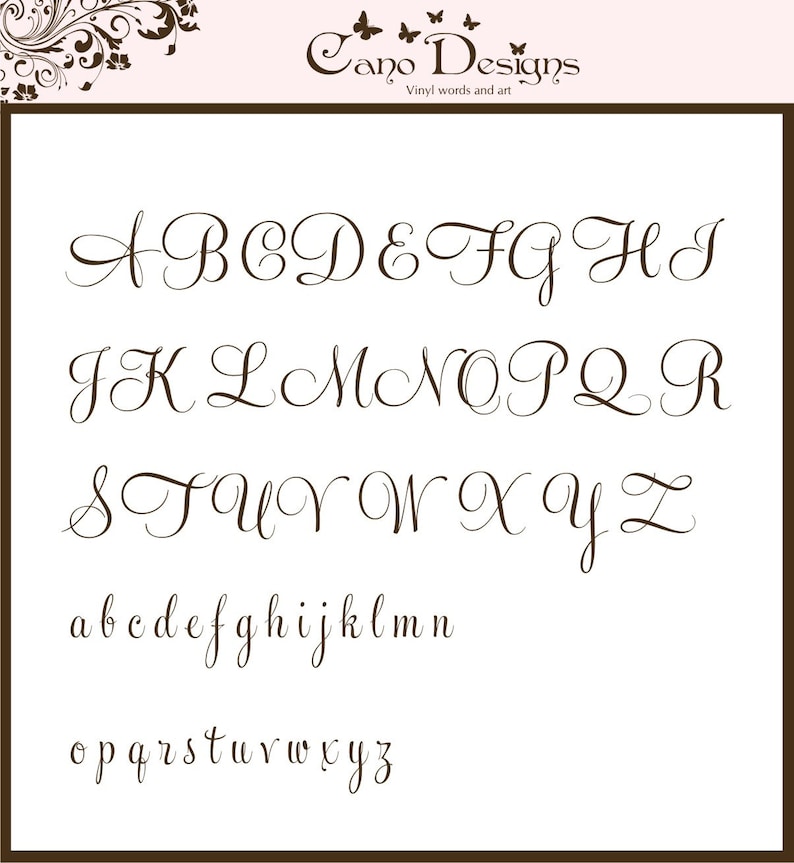 Cano Designs
Vinyl words and art
A B C D E F G H I
J K L M N O P Q R
S T U V W X Y Z
a b c d e f g h i j k l m n
o p q r s t u v w x y z